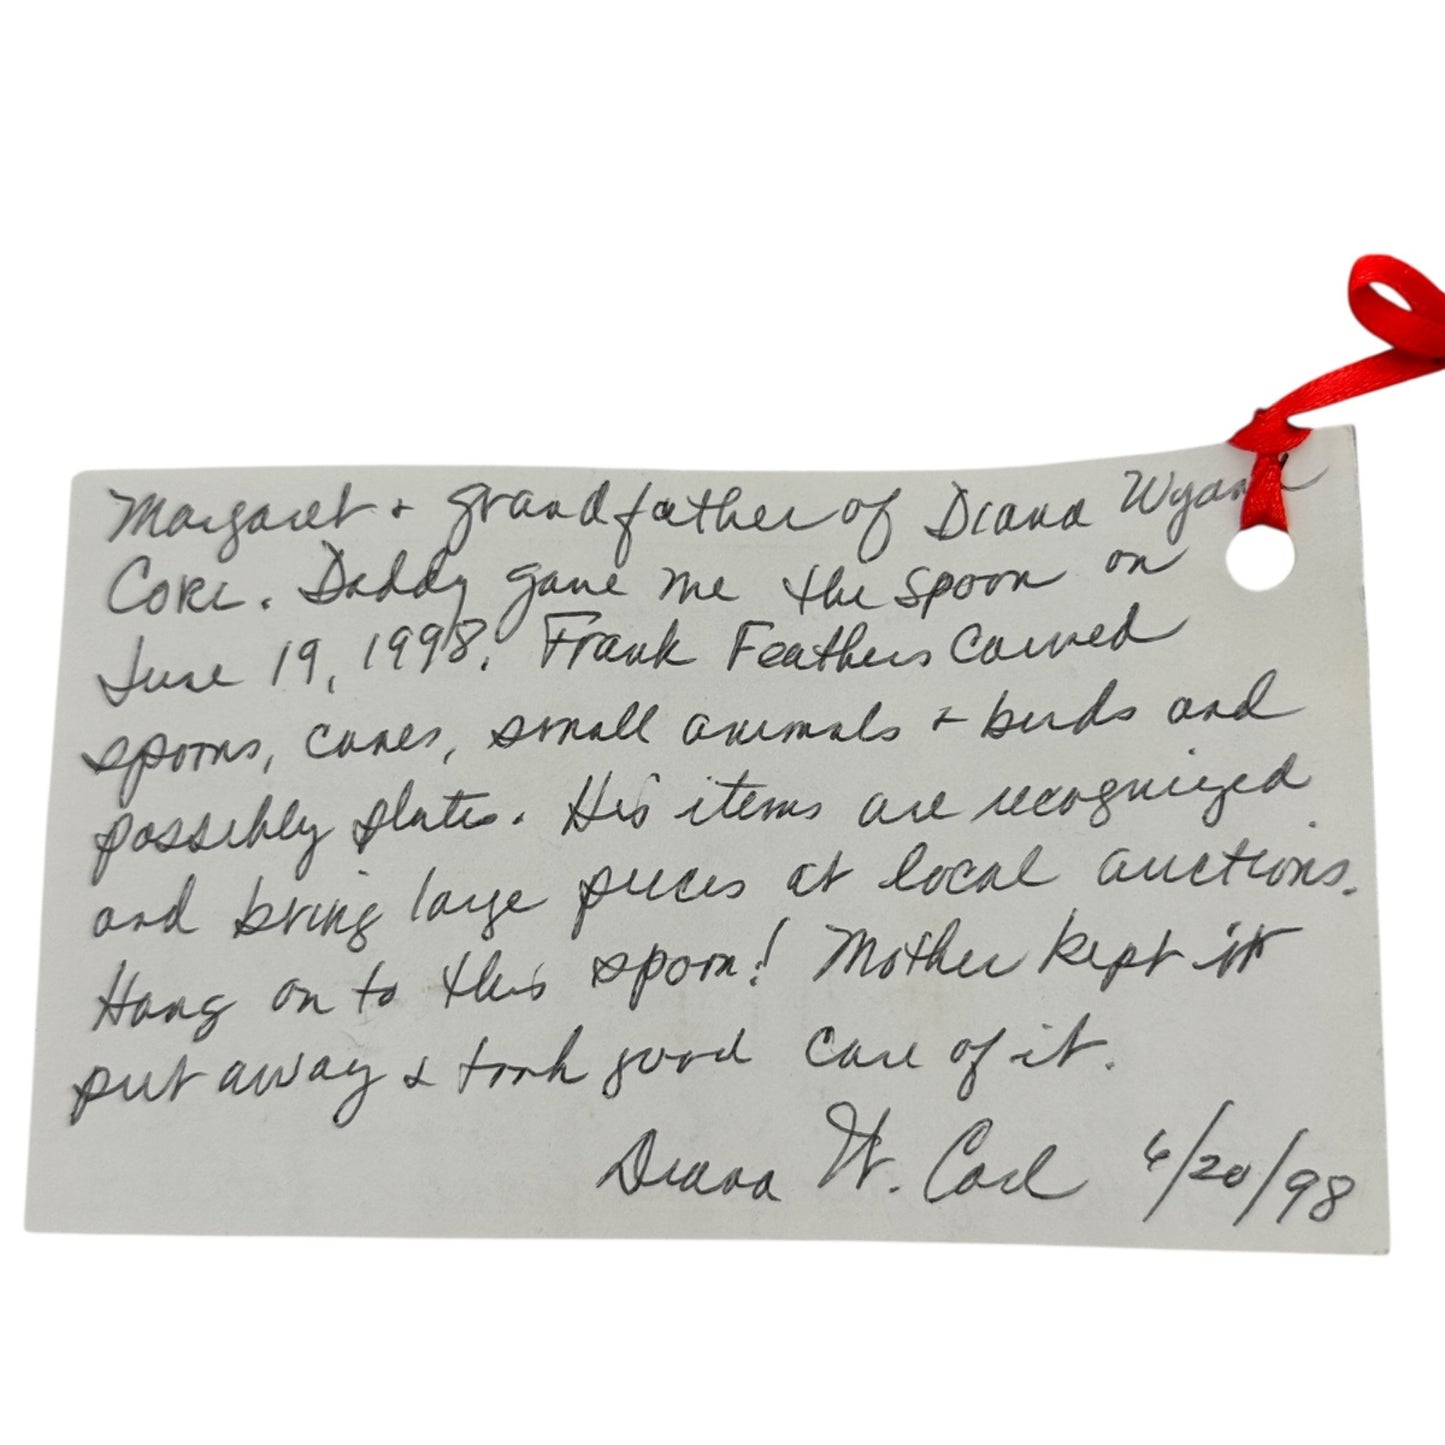 Margaret + grandfather of Diana
Daddy gave me the spoon on
June 19, 1998. Frank Feathers carved
spoons, canes, small animals + birds and
possibly plates. His items are recognized
and bring large prices at local auctions.
Hang on to this spoon! Mother kept it
put away + took good care of it.
Diana W. 6/20/98